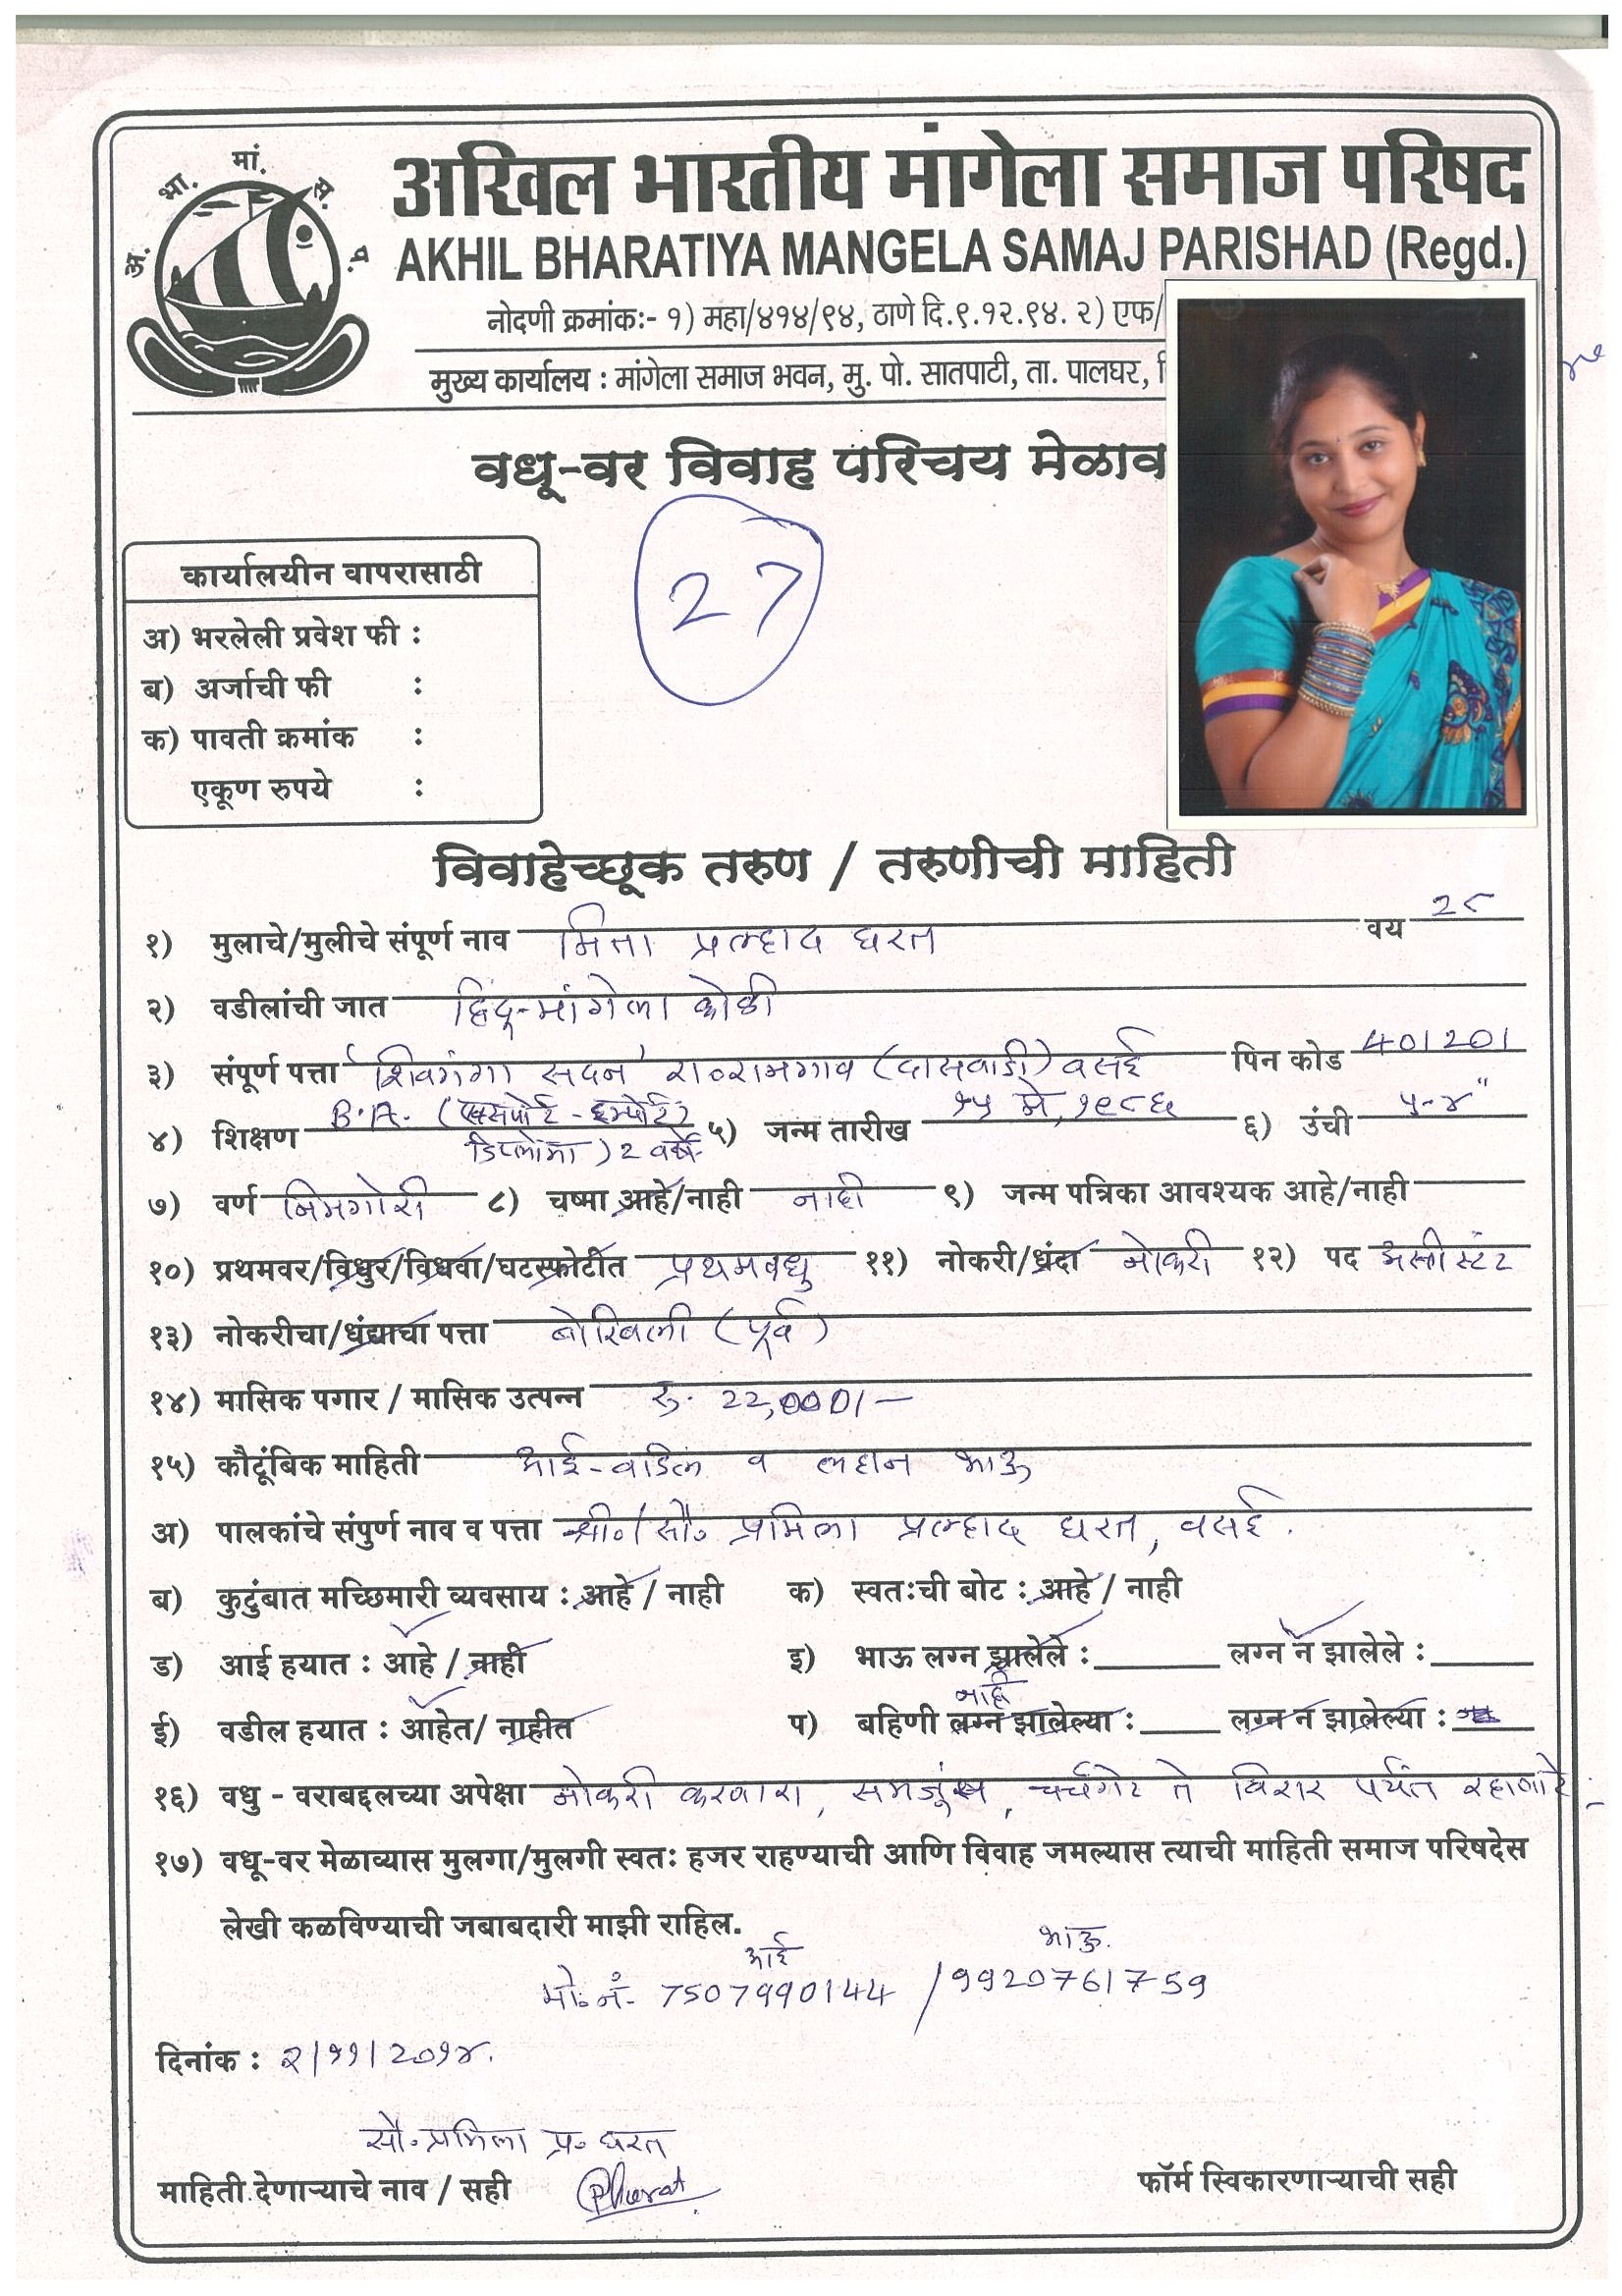 अ. भा. मां. स. प.
अखिल भारतीय मांगेला समाज परिषद
AKHIL BHARATIYA MANGELA SAMAJ PARISHAD (Regd.)
नोदणी क्रमांकः- १) महा/४१४/९४, ठाणे दि.९.१२.९४. २) एफ/
मुख्य कार्यालय : मांगेला समाज भवन, मु. पो. सातपाटी, ता. पालघर,
वधू-वर विवाह परिचय मेळाव
27
कार्यालयीन वापरासाठी
अ) भरलेली प्रवेश फी :
ब) अर्जाची फी :
क) पावती क्रमांक :
एकूण रुपये :
विवाहेच्छूक तरुण / तरुणीची माहिती
१) मुलाचे/मुलीचे संपूर्ण नाव मिता प्रल्हाद घरत वय २८
२) वडीलांची जात हिंदू-मांगेला कोळी
३) संपूर्ण पत्ता 'शिवगंगा सदन' रा० रामगाव (दासवाडी) वसई पिन कोड 401201
४) शिक्षण B.A. (एक्सपोर्ट - इम्पोर्ट डिप्लोमा) 2 वर्षे ५) जन्म तारीख १५ मे, १९८६ ६) उंची ५-४"
७) वर्ण निमगोरी ८) चष्मा आहे/नाही नाही ९) जन्म पत्रिका आवश्यक आहे/नाही
१०) प्रथमवर/विधुर/विधवा/घटस्फोटीत प्रथमवधु ११) नोकरी/धंदा नोकरी १२) पद असीस्टंट
१३) नोकरीचा/धंद्याचा पत्ता बोरिवली (पूर्व)
१४) मासिक पगार / मासिक उत्पन्न रु. 22,000/-
१५) कौटूंबिक माहिती आई-वडिल व लहान भाऊ
अ) पालकांचे संपुर्ण नाव व पत्ता श्री०/सौ० प्रमिला प्रल्हाद घरत, वसई.
ब) कुटुंबात मच्छिमारी व्यवसाय : आहे / नाही क) स्वतःची बोट : आहे / नाही
ड) आई हयात : आहे / नाही इ) भाऊ लग्न झालेले : लग्न न झालेले :
नाही
ई) वडील हयात : आहेत/ नाहीत प) बहिणी लग्न झालेल्या : लग्न न झालेल्या :
१६) वधु - वराबद्दलच्या अपेक्षा नोकरी करणारा, समजूस, चर्चगेट ते विरार पर्यंत रहाणारे
१७) वधू-वर मेळाव्यास मुलगा/मुलगी स्वतः हजर राहण्याची आणि विवाह जमल्यास त्याची माहिती समाज परिषदेस
लेखी कळविण्याची जबाबदारी माझी राहिल.
आई भाऊ.
मो.नं- 7507990144 / 9920761759
दिनांक : २/११/२०१४.
सौ. प्रमिला प्र. घरत
माहिती देणाऱ्याचे नाव / सही PGharat फॉर्म स्विकारणाऱ्याची सही